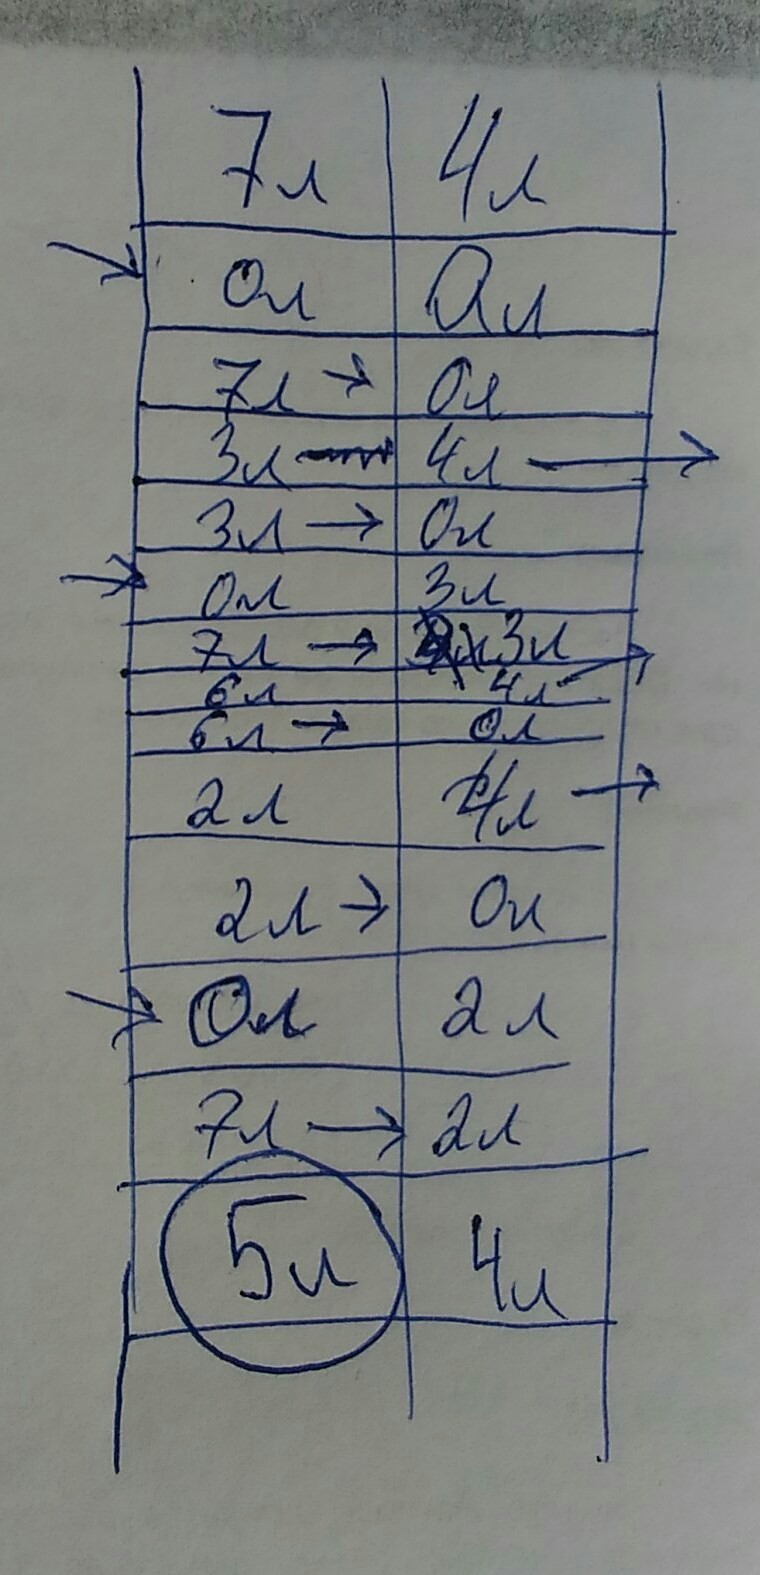 7л 4л
0л 0л
7л → 0л
3л 4л →
3л → 0л
0л 3л
7л → 3л
6л 4л →
6л → 0л
2л 4л →
2л → 0л
0л 2л
7л → 2л
5л 4л